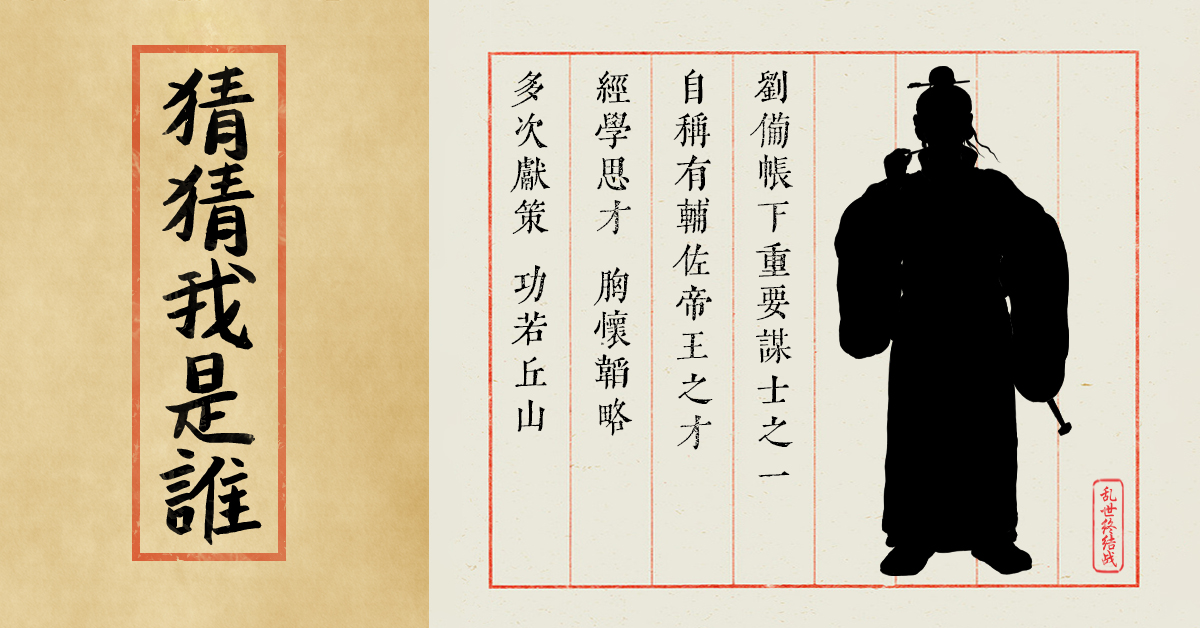 猜猜我是誰
劉備帳下重要謀士之一
自稱有輔佐帝王之才
經學思才 胸懷韜略
多次獻策 功若丘山
乱世终结战